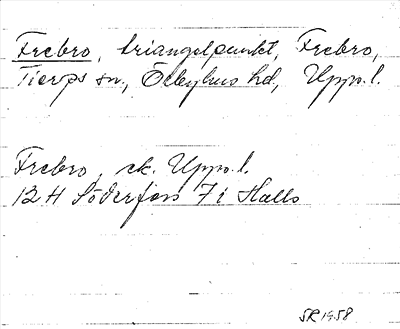 Frebro, triangelpunkt, Frebro,
Tierps sn, Örbyhus hd, Upps.l.
Frebro, ek. Upps.l.
12 H Söderfors 7 i Halls
SR 1958